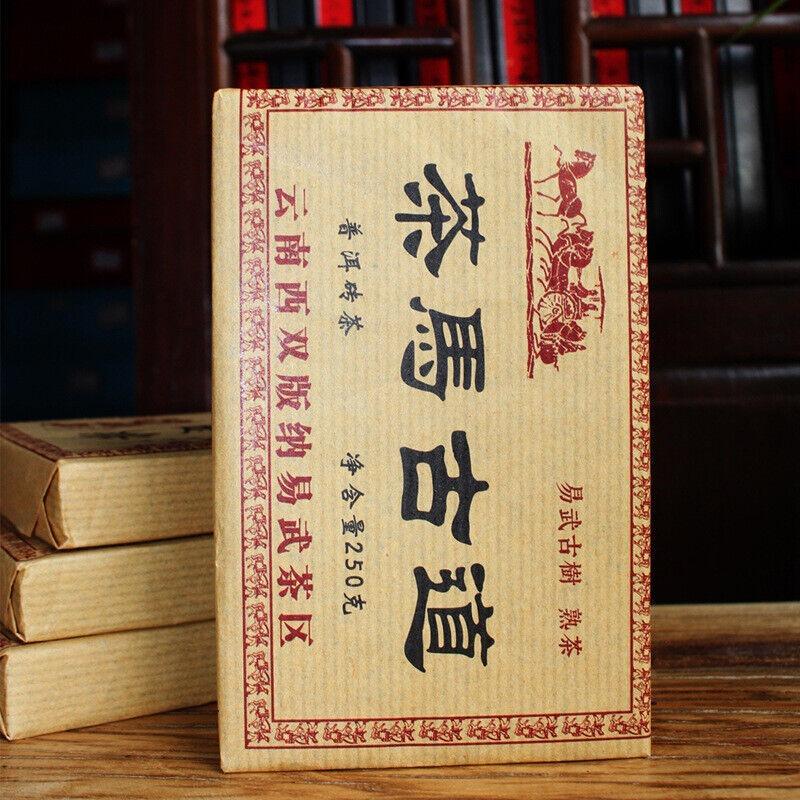 易武古樹 熟茶
茶馬古道
普洱砖茶 净含量250克
云南西双版纳易武茶区